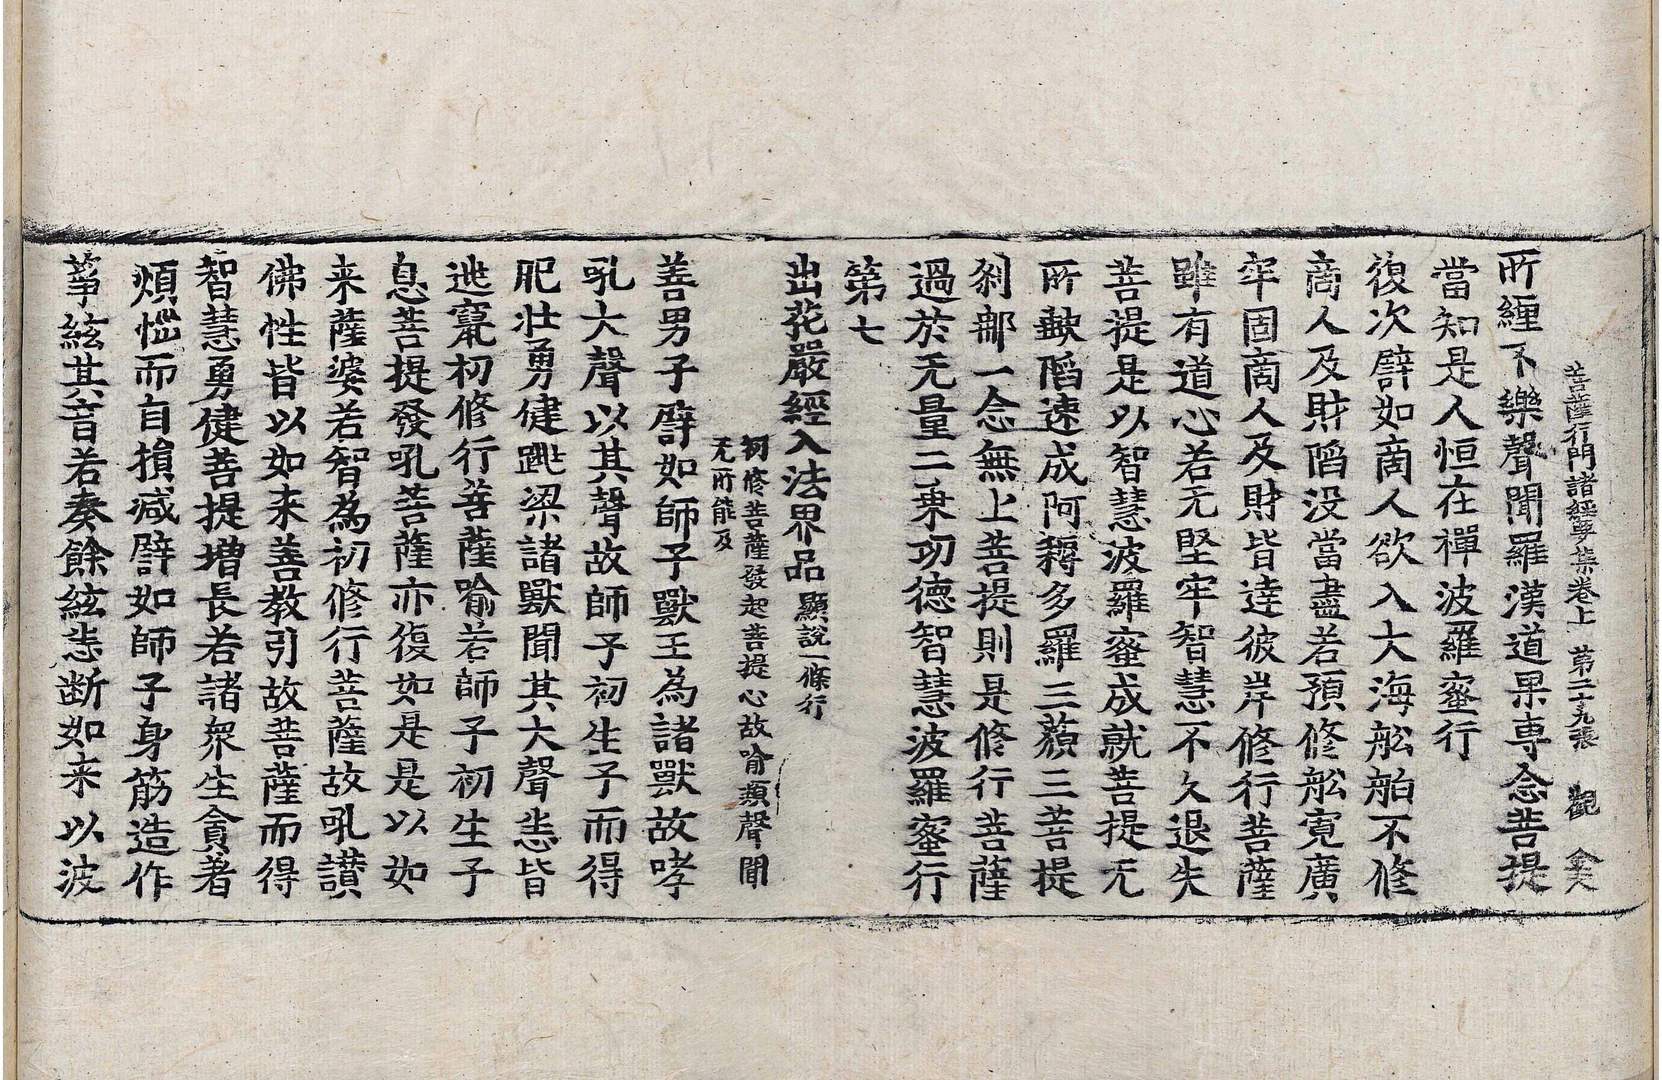 菩薩行門諸經要集卷上　第二十九張　觀　金天
所纏不樂聲聞羅漢道果専念菩提
當知是人恒在禪波羅蜜行
復次譬如商人欲入大海舩舶不修
商人及財䧟没當盡若預修舩寛廣
牢固商人及財皆達彼岸修行菩薩
雖有道心若无堅牢智慧不久退失
菩提是以智慧波羅蜜成就菩提无
所䡋䧟速成阿耨多羅三藐三菩提
刹那一念無上菩提則是修行菩薩
過於无量二乗功德智慧波羅蜜行
第七
出花嚴經入法界品 顯説一條行
初修菩薩發起菩提心故喻類聲聞
无所能及
善男子譬如師子獸王為諸獸故哮
吼大聲以其聲故師子初生子而得
肥壮勇健跳梁諸獸聞其大聲悉皆
迯竄初修行菩薩喻若師子初生子
息菩提發吼菩薩亦復如是是以如
来薩婆若智為初修行菩薩故吼讃
佛性皆以如来善教引故菩薩而得
智慧勇健菩提増長若諸衆生貪著
煩惱而自損減譬如師子身筋造作
筝絃其音若奏餘絃悉断如来以波